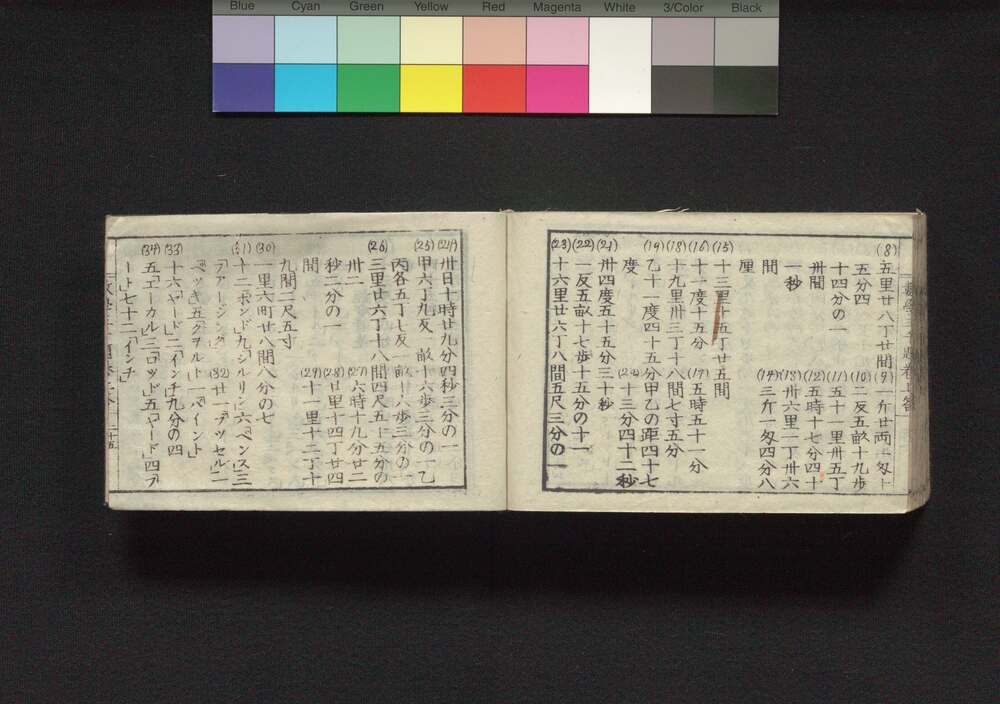 Blue Cyan Green Yellow Red Magenta White 3/Color Black
(8) 五里廿八丁廿間 (9) 一斤廿両二匁十
五分四 (10) 二反五畝十九歩
十四分の一 (11) 五十一里卅五丁
卅間 (12) 五時十七分四十
一秒 (13) 卅六里一丁卅六
間 (14) 三斤一匁四分八
厘
(15) 十三里十五丁廿五間
(16) 十一度十五分 (17) 五時五十一分
(18) 十九里卅三丁十八間七寸五分
(19) 乙十一度四十五分甲乙の距四十七
度 (20) 十三分四十二秒
(21) 卅四度五十五分三十秒
(22) 一反五畝十七歩十五分の十一
(23) 十六里廿六丁八間五尺三分の一
(24) 卅日十時廿九分四秒三分の一
(25) 甲六丁九反一畝十六歩三分の一乙
丙各五丁七反一畝十八歩三分の一
(26) 三里廿六丁十八間四尺五寸五分の
卅二 (27) 六時十九分廿二
秒二分の一 (28) 廿里十四丁廿四
間 (29) 十一里十二丁十
九間二尺五寸
(30) 一里六町廿八間八分の七
(31) 十二「ポンド」九「シルリン」六「ペンス」三
「フアージング」 (32) 廿一「ブッセル」二
「ペッキ」五「クヲルト」一「パイント」
(33) 十六「ヤード」二「インチ」九分の四
(34) 五「エーカル」三「ロッド」五「ヤード」四「フ
ート」七十二「インチ」